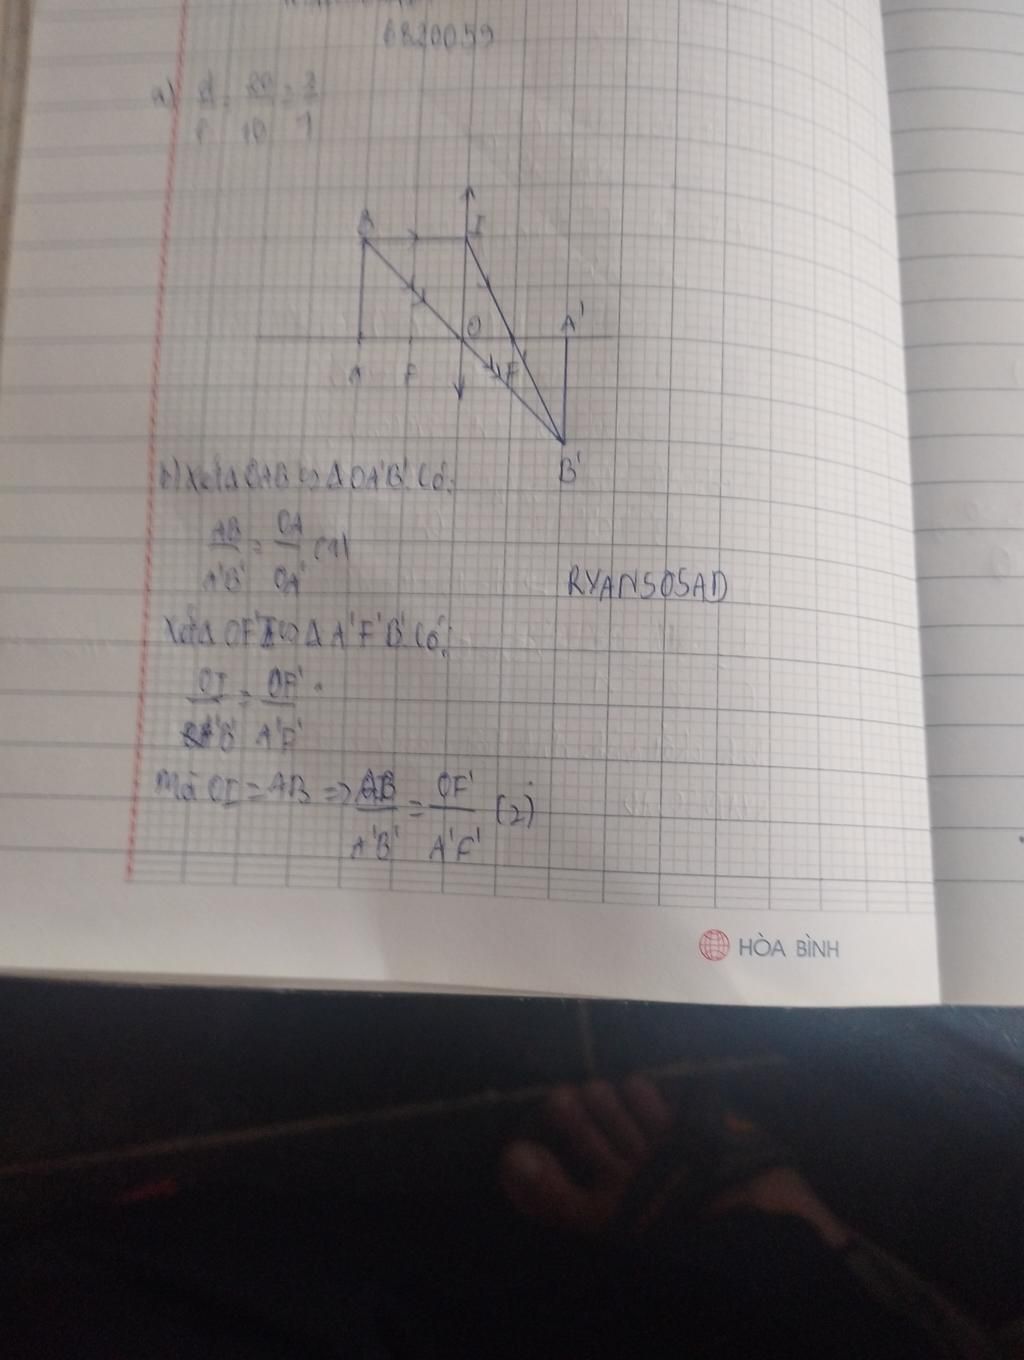 6820059
a) d/f = 20/10 = 2/1
B I
O A'
A F F'
B'
b) Xét Δ OAB ∽ Δ OA'B' Có:
AB/A'B' = OA/OA' (1)
RYANSOSAD
Xét Δ OF'I ∽ Δ A'F'B' Có:
OI/A'B' = OF'/A'F'
Mà OI = AB => AB/A'B' = OF'/A'F' (2)
HÒA BÌNH